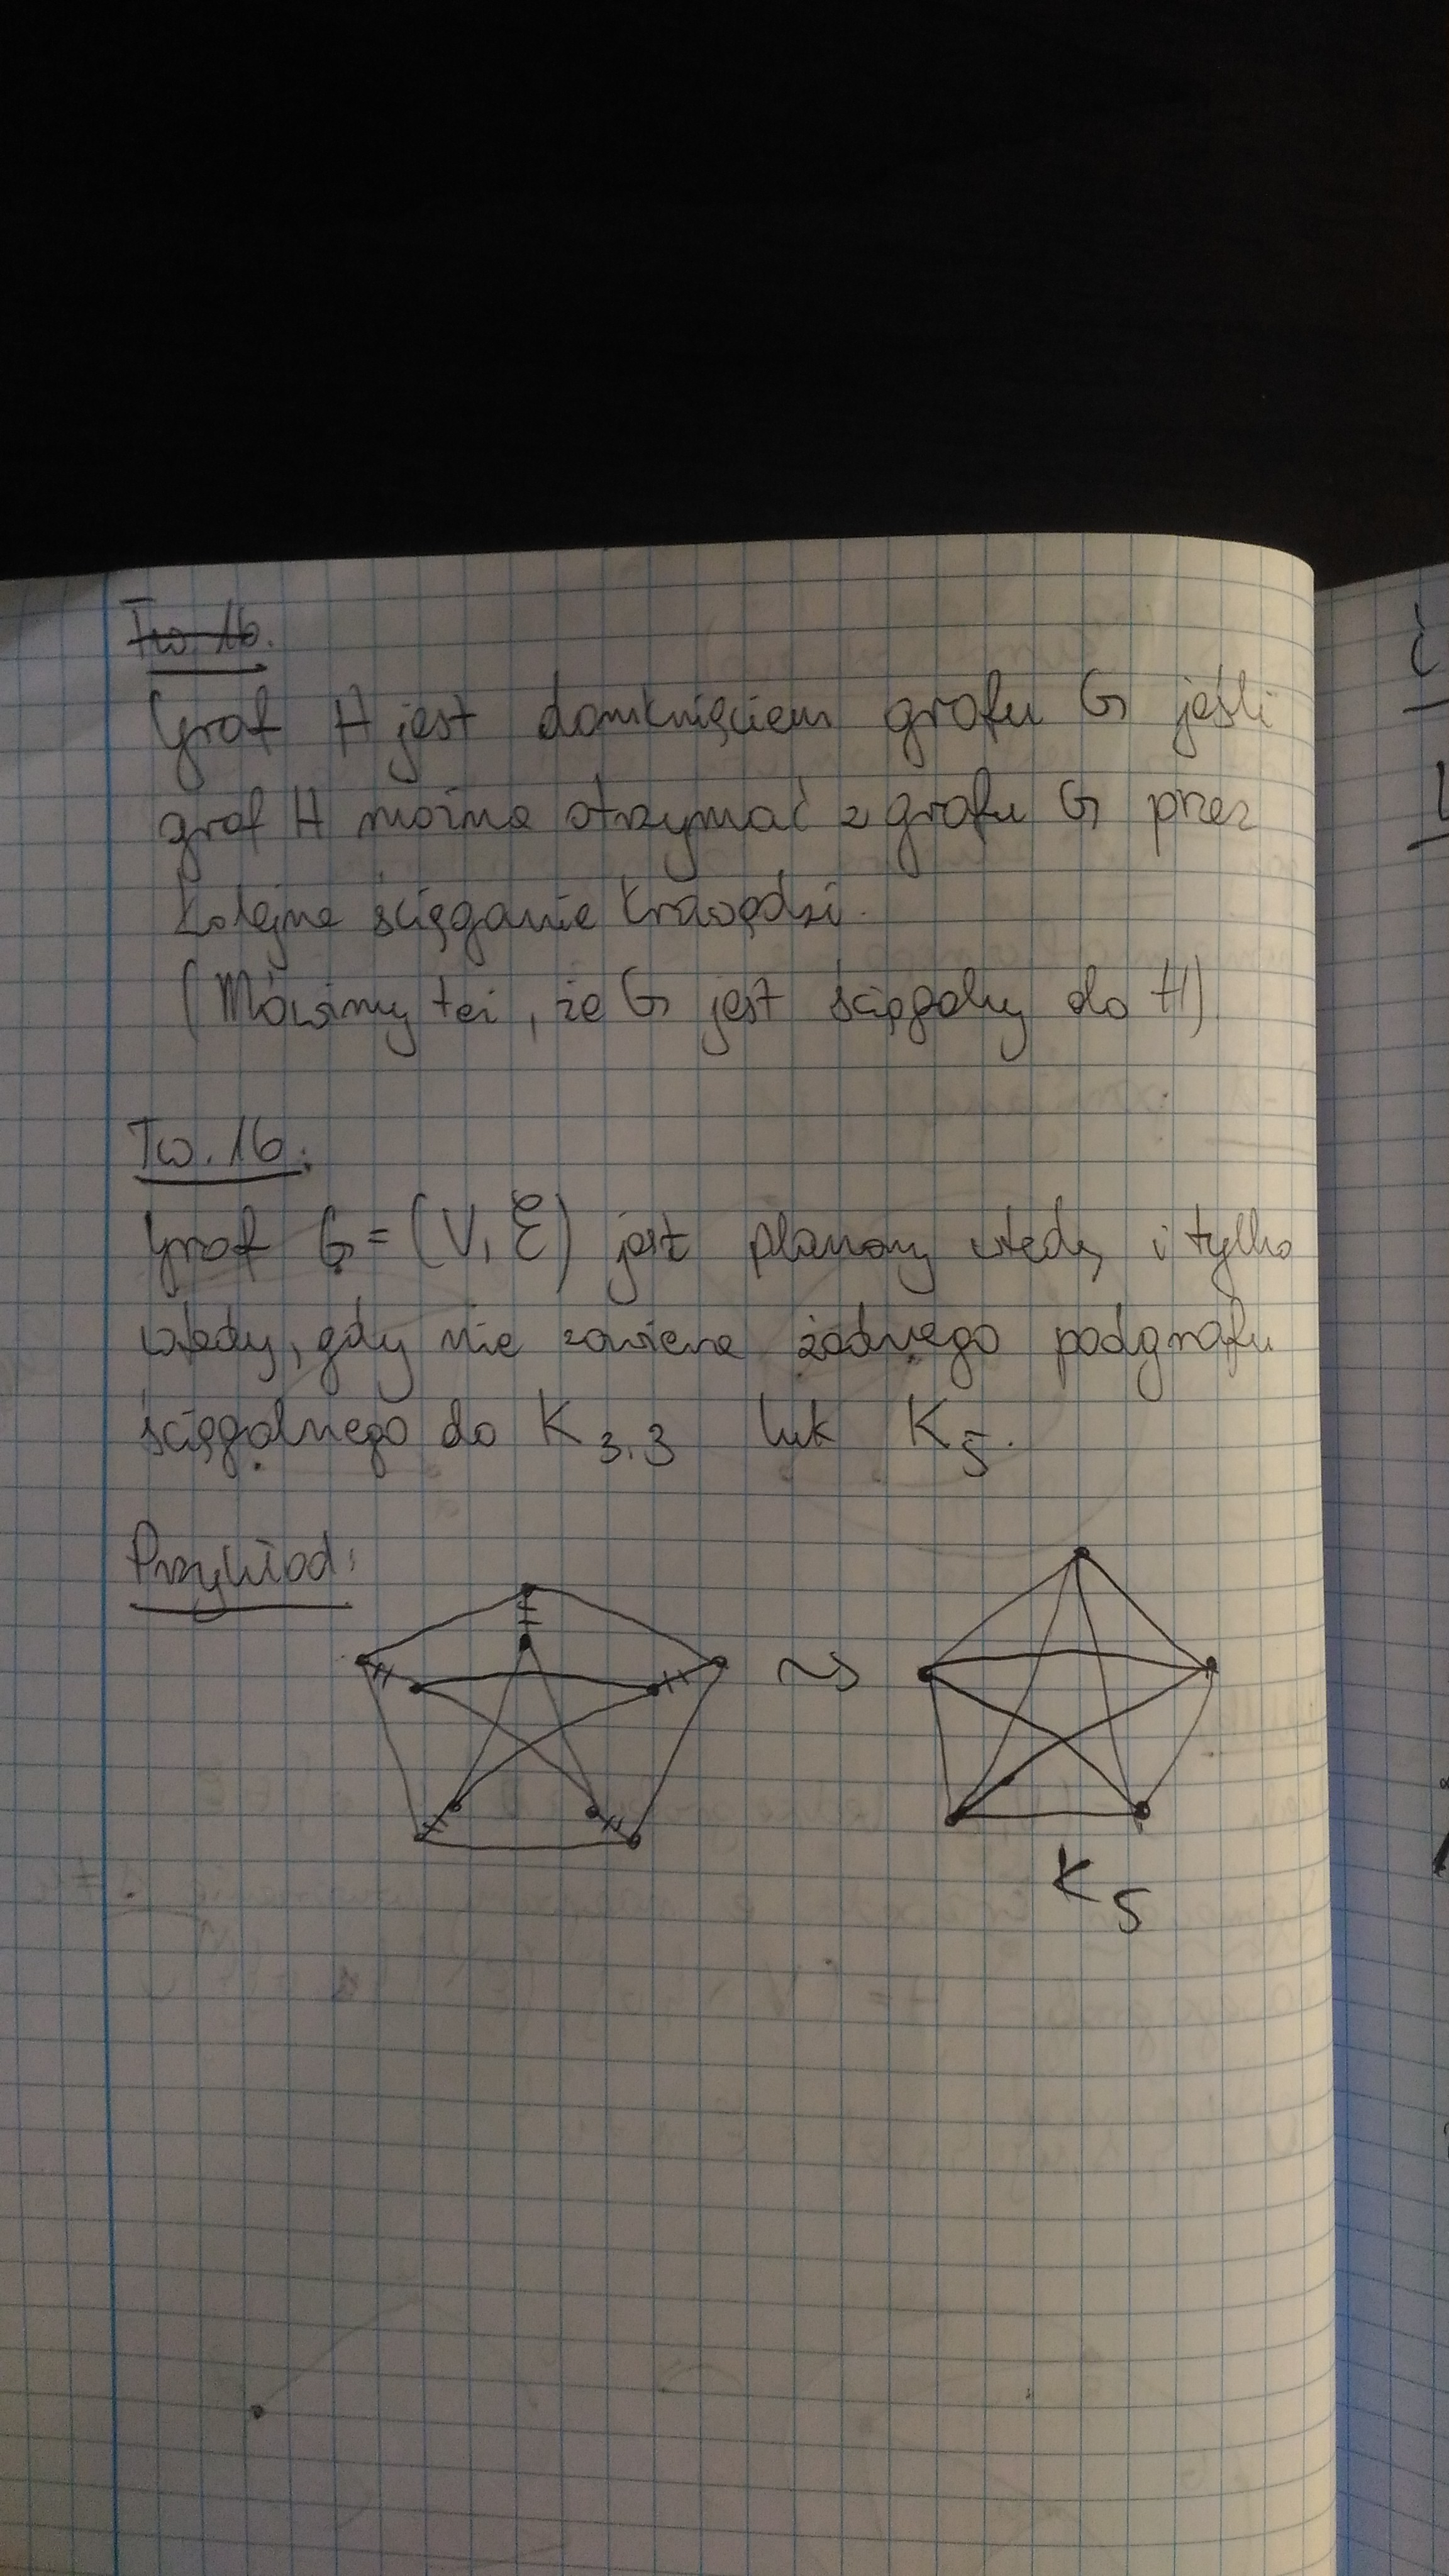 Tw. 16.
Graf H jest domknięciem grafu G jeśli
graf H można otrzymać z grafu G przez
kolejne ściąganie krawędzi.
(Mówimy też, że G jest ściągalny do H)
Tw. 16:
Graf G = (V, E) jest planarny wtedy i tylko
wtedy, gdy nie zawiera żadnego podgrafu
ściągalnego do K3,3 lub K5.
Przykład:
K5